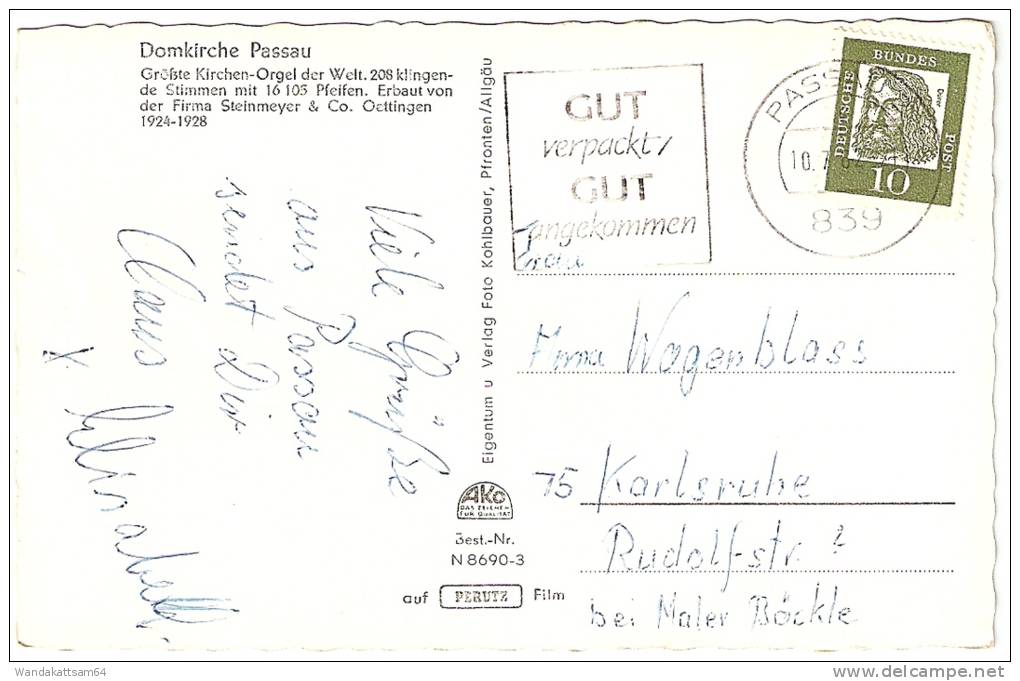 Domkirche Passau
Größte Kirchen-Orgel der Welt. 208 klingen-
de Stimmen mit 16 105 Pfeifen. Erbaut von
der Firma Steinmeyer & Co. Oettingen
1924-1928
Viele Grüße
aus Passau
sendet Dir
Claus
+ Elisabeth.
Eigentum u Verlag Foto Kohlbauer, Pfronten/Allgäu
AKO
DAS ZEICHEN
FÜR QUALITÄT
Best.-Nr.
N 8690-3
auf PERUTZ Film
GUT
verpackt/
GUT
angekommen
PASS
10.7
839
DEUTSCHE BUNDES POST
Dürer
10
Frau
Firma Wagenblass
75 Karlsruhe
Rudolfstr. ?
bei Maler Böckle
Wandakattsam64
delcampe.net